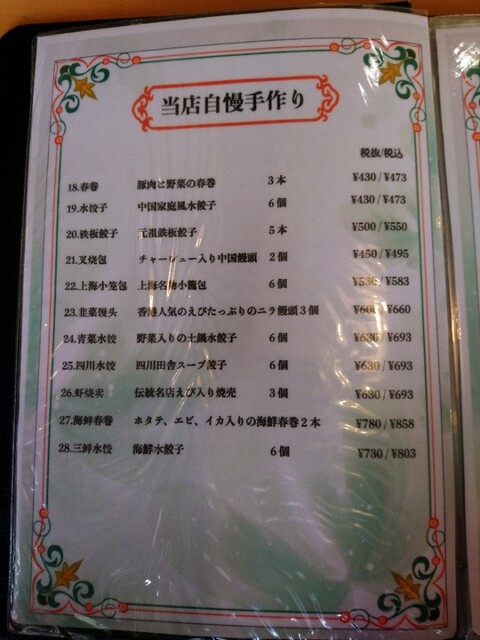 当店自慢手作り
税抜/税込
18.春巻 豚肉と野菜の春巻 3本 ¥430 / ¥473
19.水饺子 中国家庭風水餃子 6個 ¥430 / ¥473
20.鉄板餃子 元祖鉄板餃子 5本 ¥500 / ¥550
21.叉烧包 チャーシュー入り中国饅頭 2個 ¥450 / ¥495
22.上海小笼包 上海名物小籠包 6個 ¥530 / ¥583
23.韭菜馒头 香港人気のえびたっぷりのニラ饅頭 3個 ¥600 / ¥660
24.青菜水饺 野菜入りの土鍋水餃子 6個 ¥630 / ¥693
25.四川水饺 四川田舎スープ餃子 6個 ¥630 / ¥693
26.虾烧卖 伝統名店えび入り焼売 3個 ¥630 / ¥693
27.海鲜春巻 ホタテ、エビ、イカ入りの海鮮春巻 2本 ¥780 / ¥858
28.三鲜水饺 海鮮水餃子 6個 ¥730 / ¥803